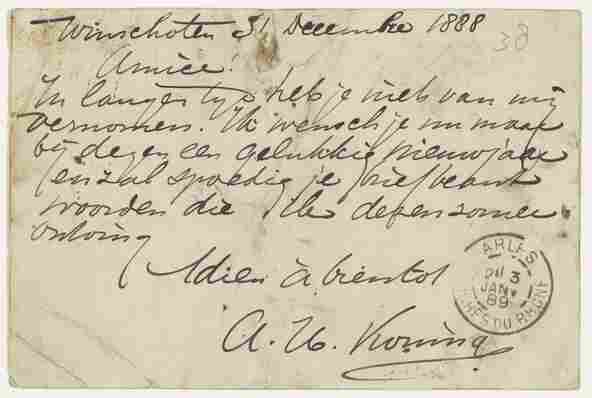 Winschoten 31 Decembre 1888
38
Amice!
In langer tijd heb je niets van mij
vernomen. Ik wensch je nu maar
bij dezen een gelukkig nieuwjaar
en zal spoedig je brief beant
woorden die ik dezen zomer
ontving
Adieu à bientot
A. H. Koning
ARLES
3
JANV
89
BCHES DU RHONE